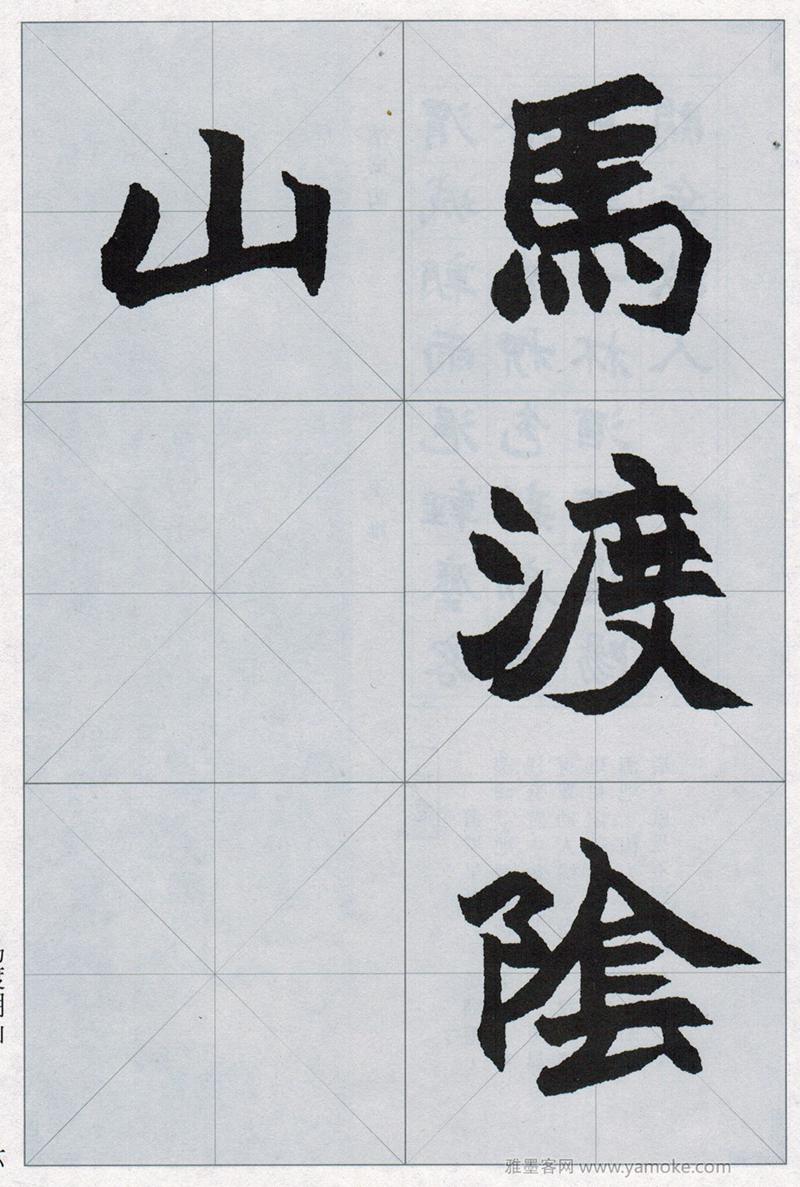 馬渡陰
山
雅墨客网 www.yamoke.com